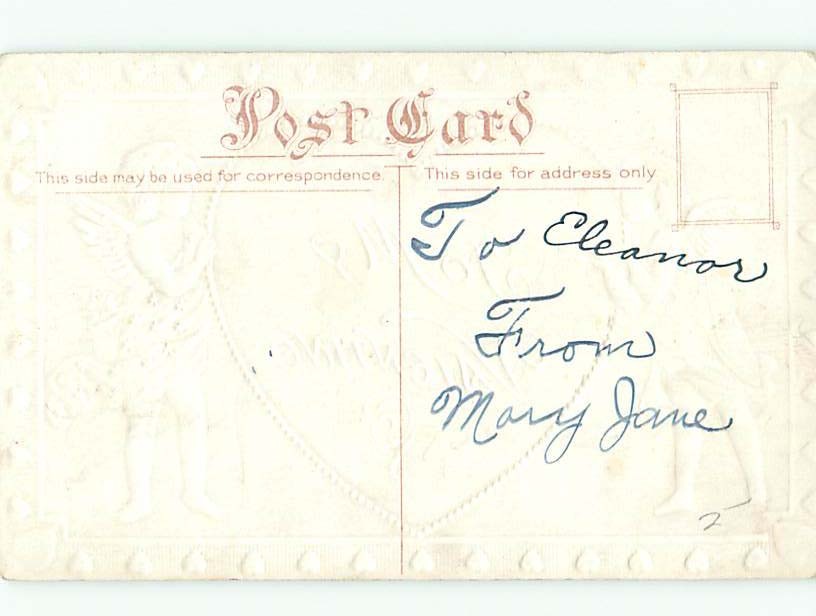 Post Card
This side may be used for correspondence.
This side for address only
To Eleanor
From
Mary Jane
2